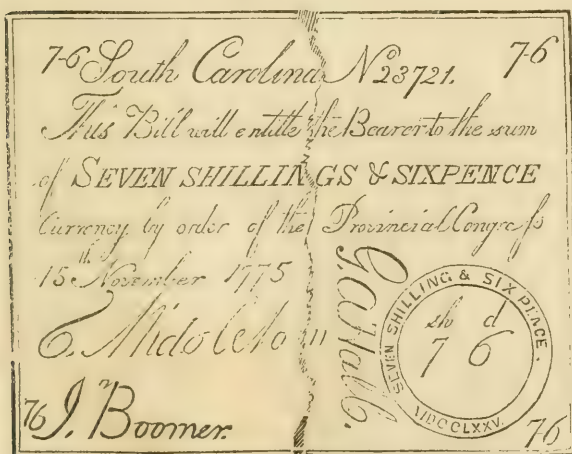 7-6 South Carolina No 23721. 7-6
This Bill will entitle the Bearer to the sum
of SEVEN SHILLINGS & SIXPENCE
Currency by order of the Provincial Congress
15th November 1775
G. Hall
SEVEN SHILLING & SIX PENCE.
sh d
7 6
MDCCLXXV.
76 Jn Boomer. 7-6